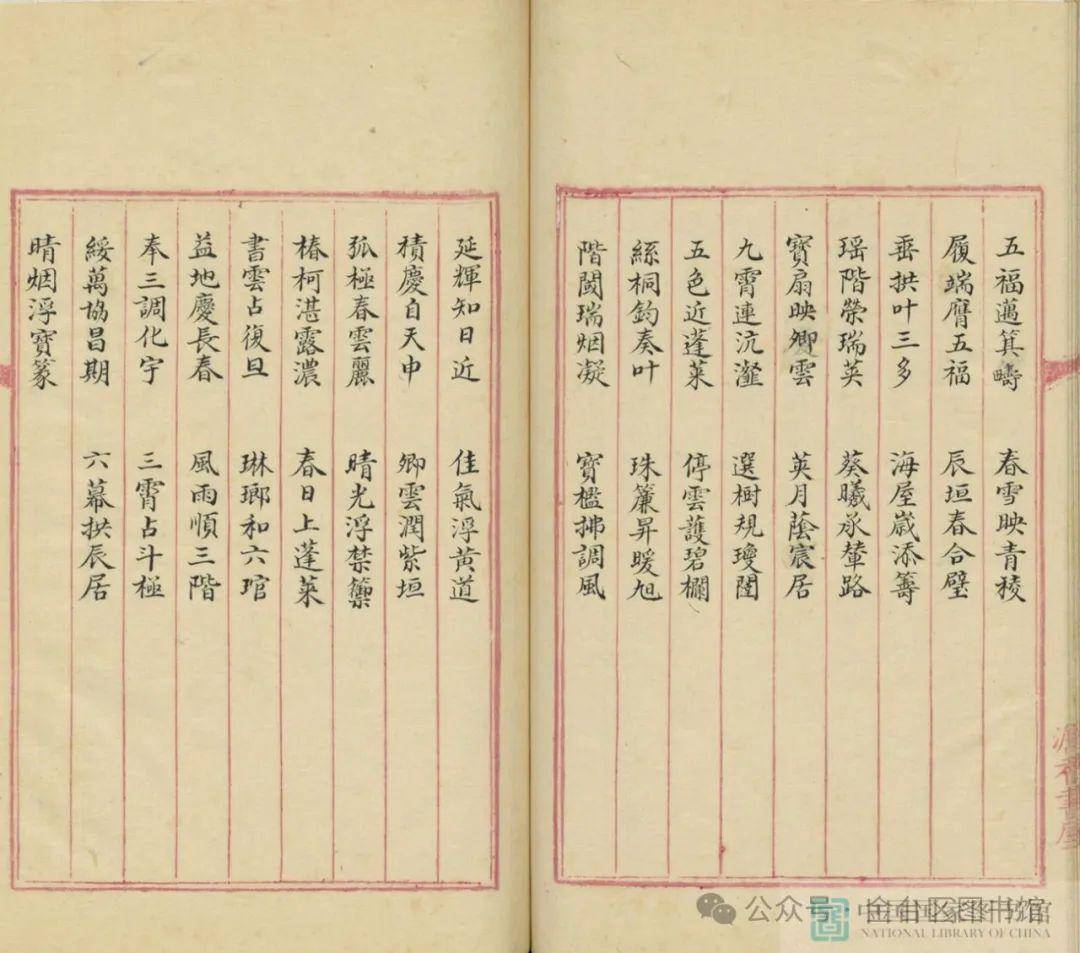 五福邁箕疇 春雪映青稜
履端膺五福 辰垣春合璧
垂拱叶三多 海屋歲添籌
瑶階榮瑞英 葵曦承輦路
寶扇映卿雲 英月蔭宸居
九霄連沆瀣 選樹規瓊囿
五色近蓬萊 停雲護碧欄
絲桐鈞奏叶 珠簾昇暖旭
階閾瑞烟凝 寶檻拂調風
延輝知日近 佳氣浮黄道
積慶自天申 卿雲潤紫垣
孤極春雲麗 晴光浮禁籞
椿柯湛露濃 春日上蓬萊
書雲占復旦 琳瑯和六琯
益地慶長春 風雨順三階
奉三調化宇 三霄占斗極
綏萬協昌期 六幕拱辰居
晴烟浮寶篆
書屋
公众号·金台区图书馆
中国国家图书馆
NATIONAL LIBRARY OF CHINA